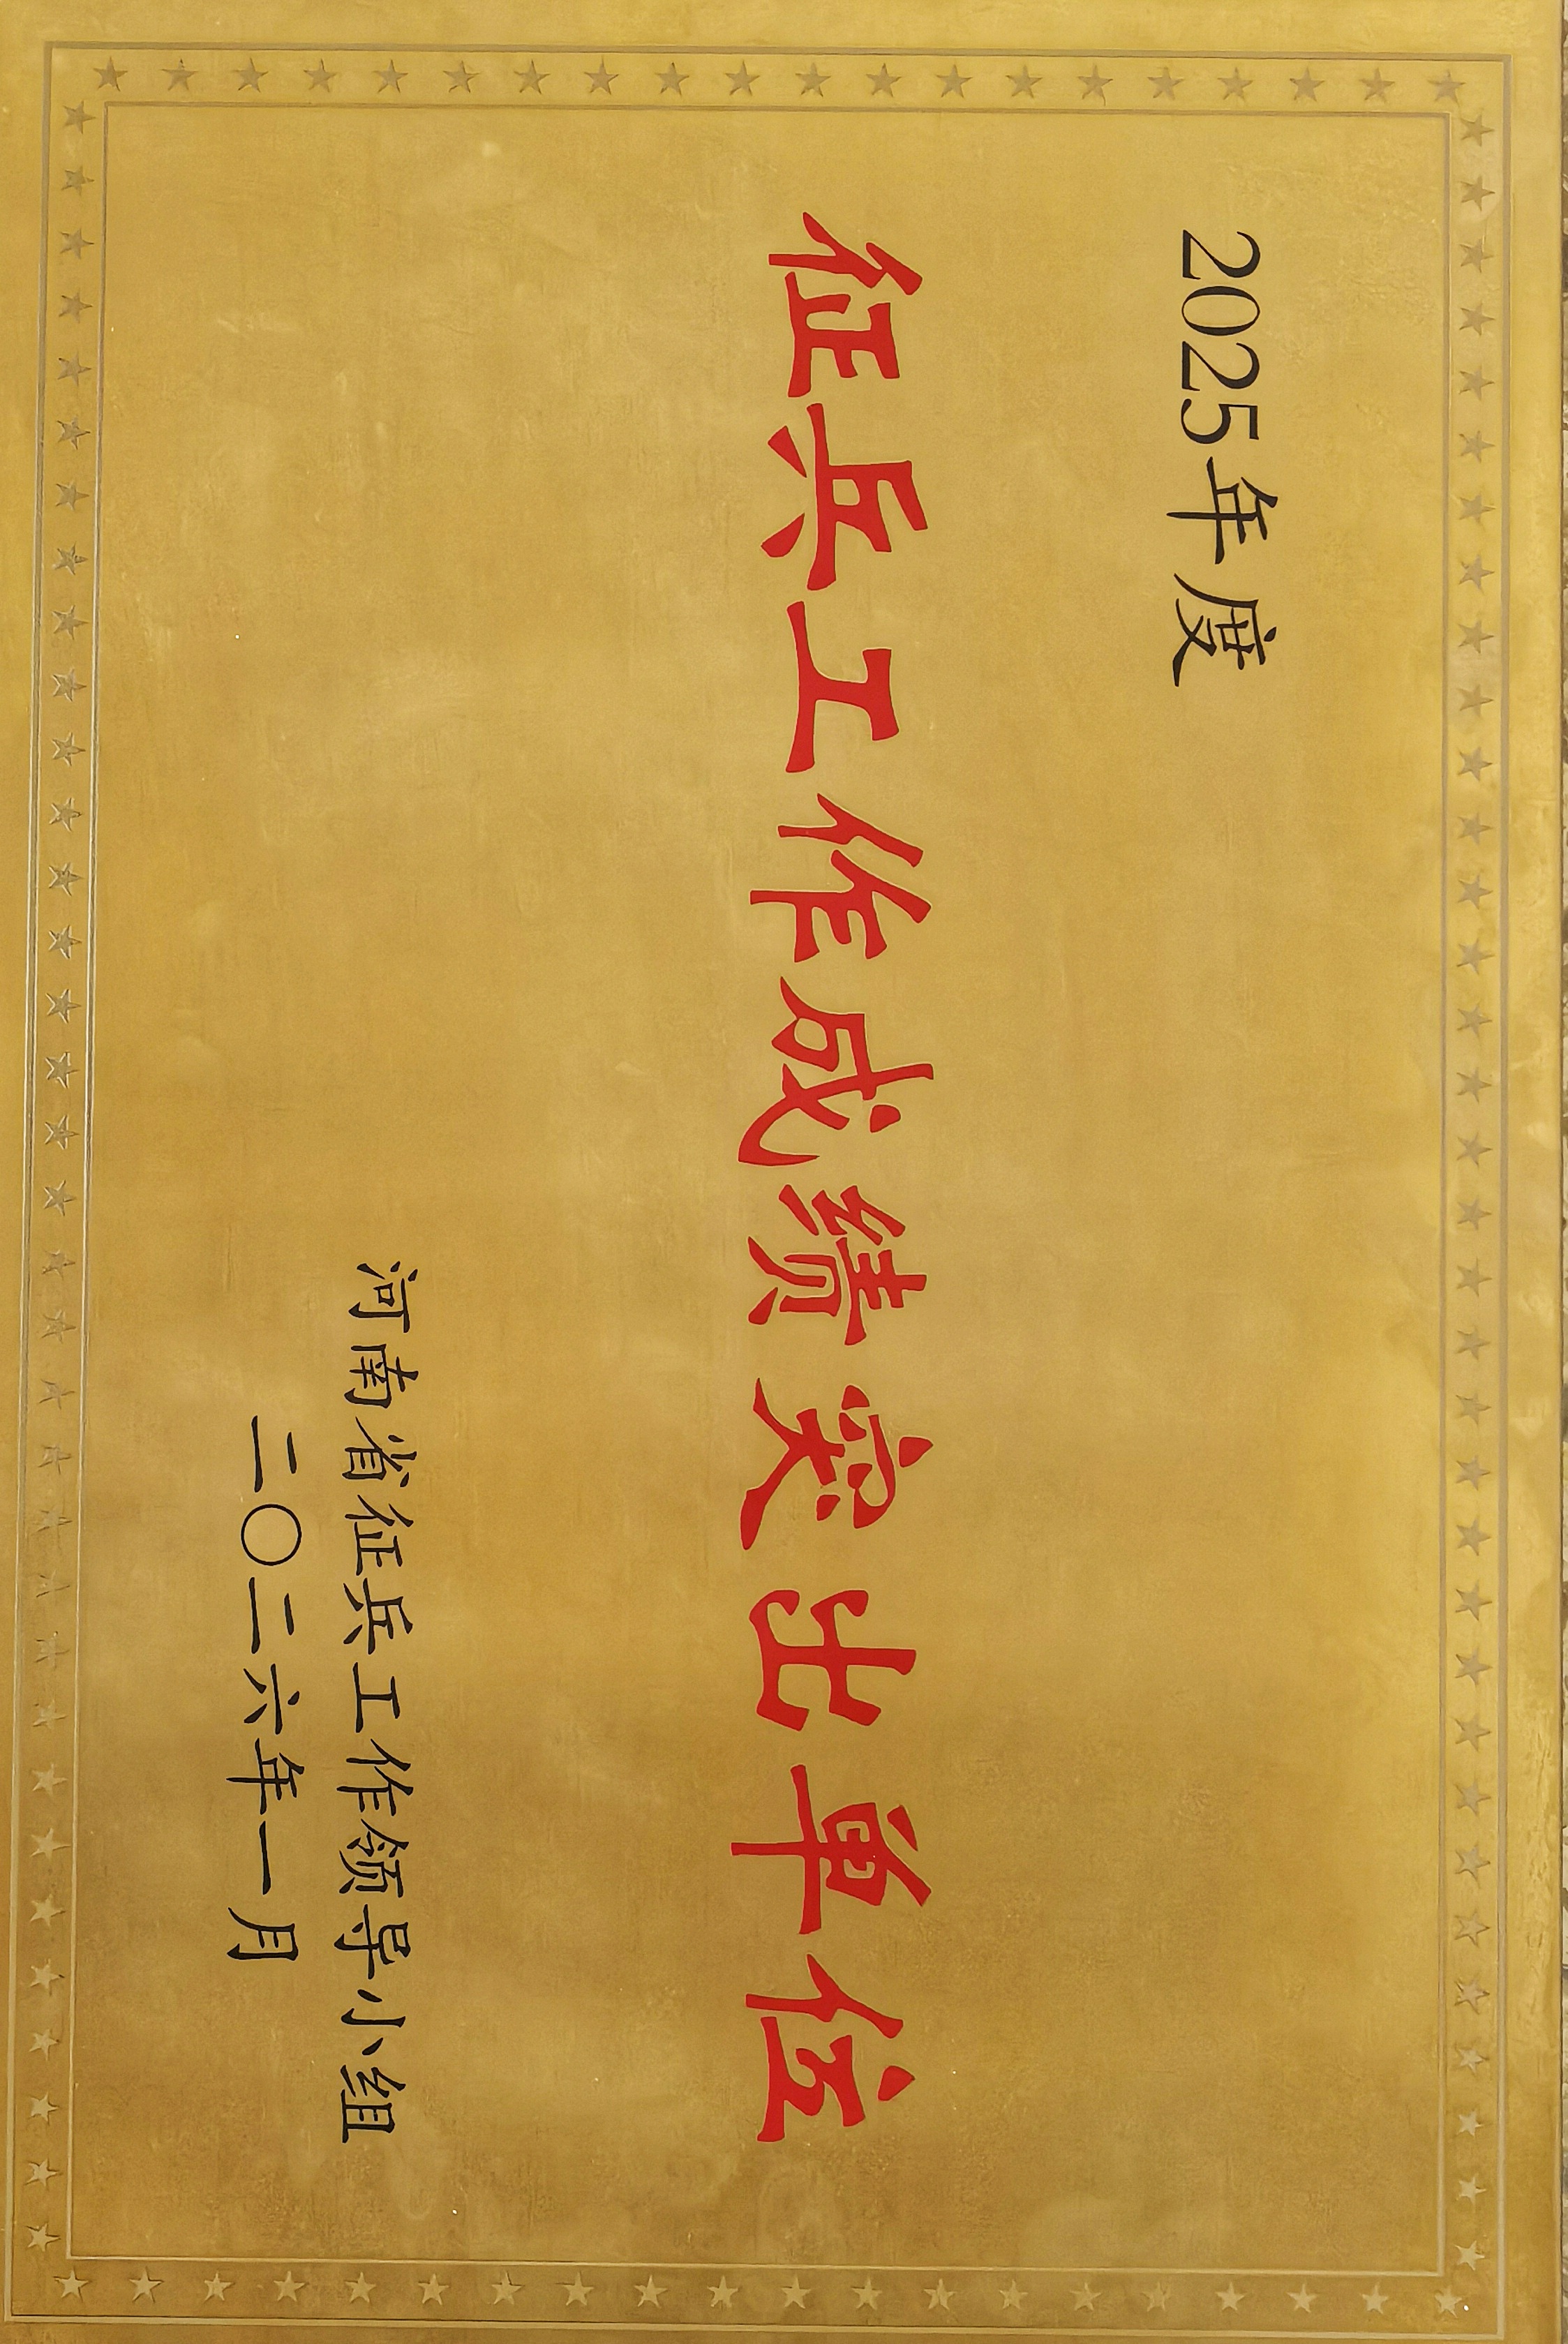 2025年度
征兵工作成绩突出单位
河南省征兵工作领导小组
二〇二六年一月